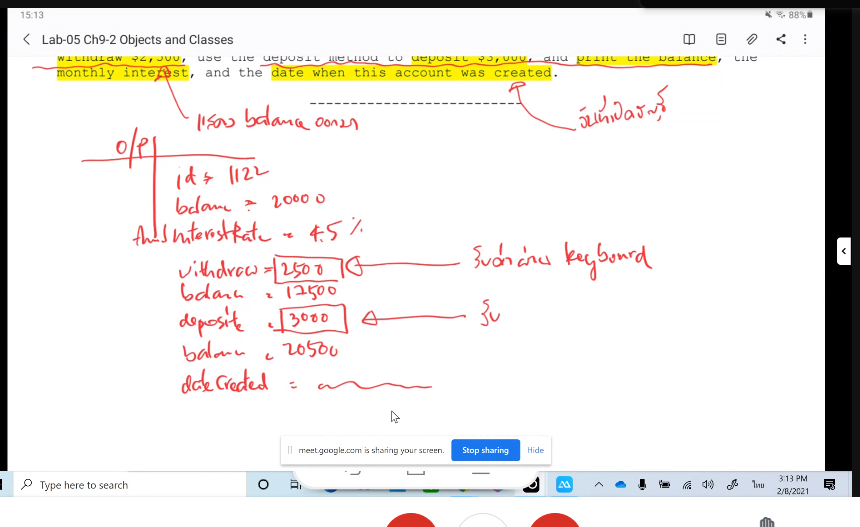 15:13
88%
Lab-05 Ch9-2 Objects and Classes
withdraw $2,500, use the deposit method to deposit $3,000, and print the balance, the
monthly interest, and the date when this account was created.
แสดง balance ออกมา
วันที่เปิดบัญชี
O/P
id = 1122
balance = 20000
AnnualInterestRate = 4.5 %
withdraw = 2500
รับค่าผ่าน keyboard
balance = 17500
deposite = 3000
รับ
balance = 20500
dateCreated =
meet.google.com is sharing your screen.
Stop sharing
Hide
Type here to search
ไทย
3:13 PM
2/8/2021